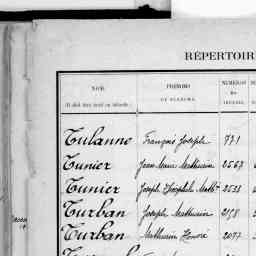 RÉPERTOIR
NOM
(Il doit être écrit en bâtarde)
PRÉNOMS
ET SURNOMS.
NUMÉROS
Tulanne François Joseph 771
Tunier Jean Marie Mathurin 2567
Tunier Joseph Théophile Math 2533
Turban Joseph Mathurin 2178
Turban Mathurin Honoré 2077